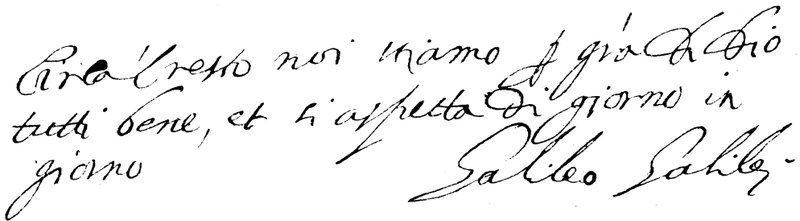 Circa 'l resto noi stiamo p gr͞a di Dio
tutti bene, et si aspetta di giorno in
giorno Galileo Galilei